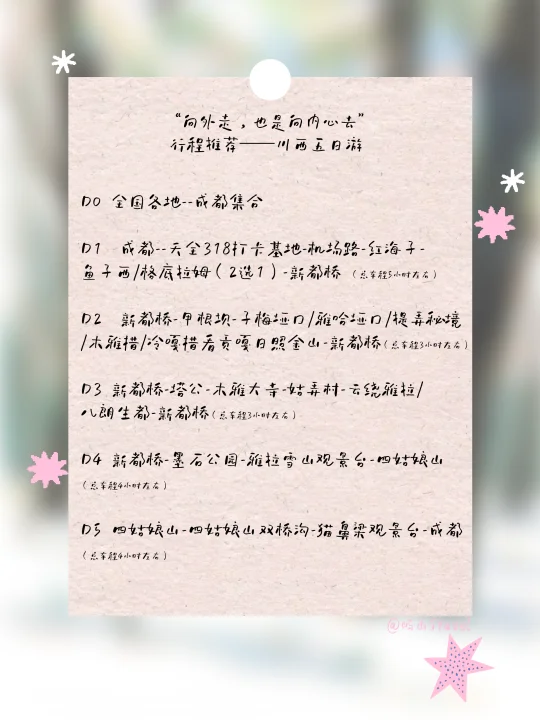 “向外走，也是向内心去”
行程推荐——川西五日游
D0 全国各地--成都集合
D1 成都--天全318打卡基地-机场路-红海子-
鱼子西/格底拉姆（2选1）-新都桥（总车程5小时左右）
D2 新都桥-甲根坝-子梅垭口/雅哈垭口/提弄秘境
/木雅措/冷嘎措看贡嘎日照金山-新都桥（总车程3小时左右）
D3 新都桥-塔公-木雅大寺-姑弄村-云绕雅拉/
八郎生都-新都桥（总车程3小时左右）
D4 新都桥-墨石公园-雅拉雪山观景台-四姑娘山
（总车程4小时左右）
D5 四姑娘山-四姑娘山双桥沟-猫鼻梁观景台-成都
（总车程4小时左右）